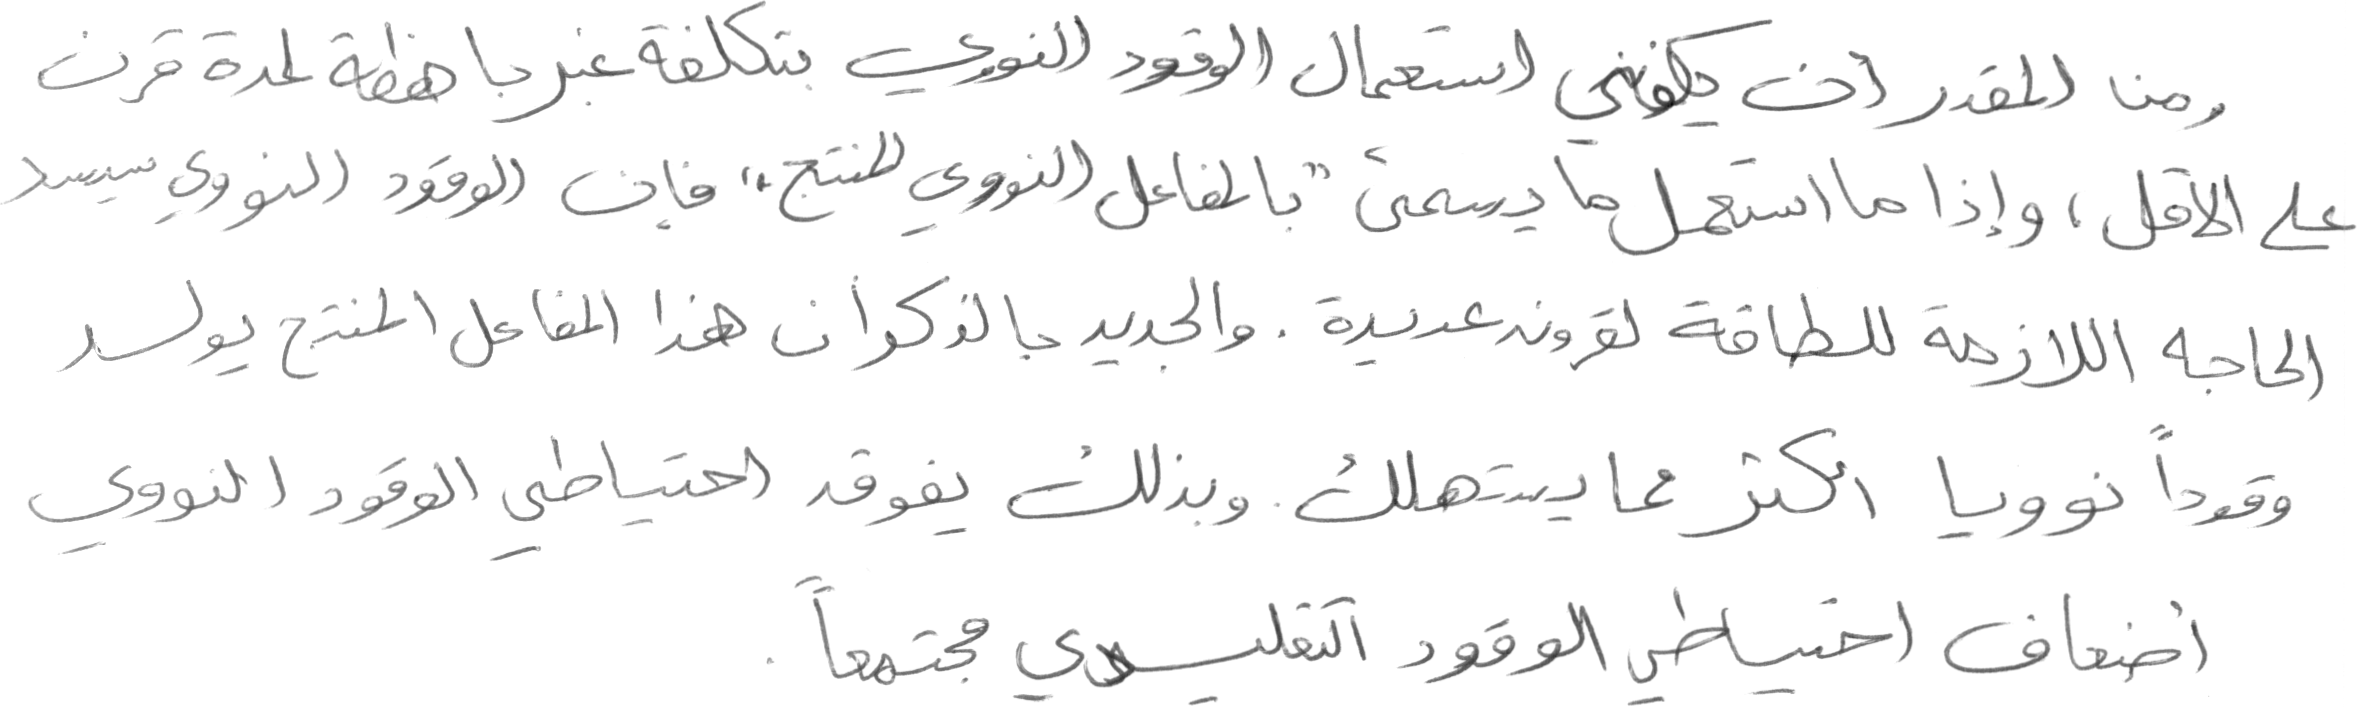 ومن المقدر أن يكفي استعمال الوقود النووي بتكلفة غير باهظة لمدة قرن
على الأقل، وإذا ما استعمل ما يسمى "بالمفاعل النووي المنتج" فإن الوقود النووي سيسد
الحاجه اللازمة للطاقة لقرون عديدة. والجدير بالذكر أن هذا المفاعل المنتج يولد
وقوداً نوويا اكثر مما يستهلك. وبذلك يفوق احتياطي الوقود النووي
أضعاف احتياطي الوقود التقليدي مجتمعاً.